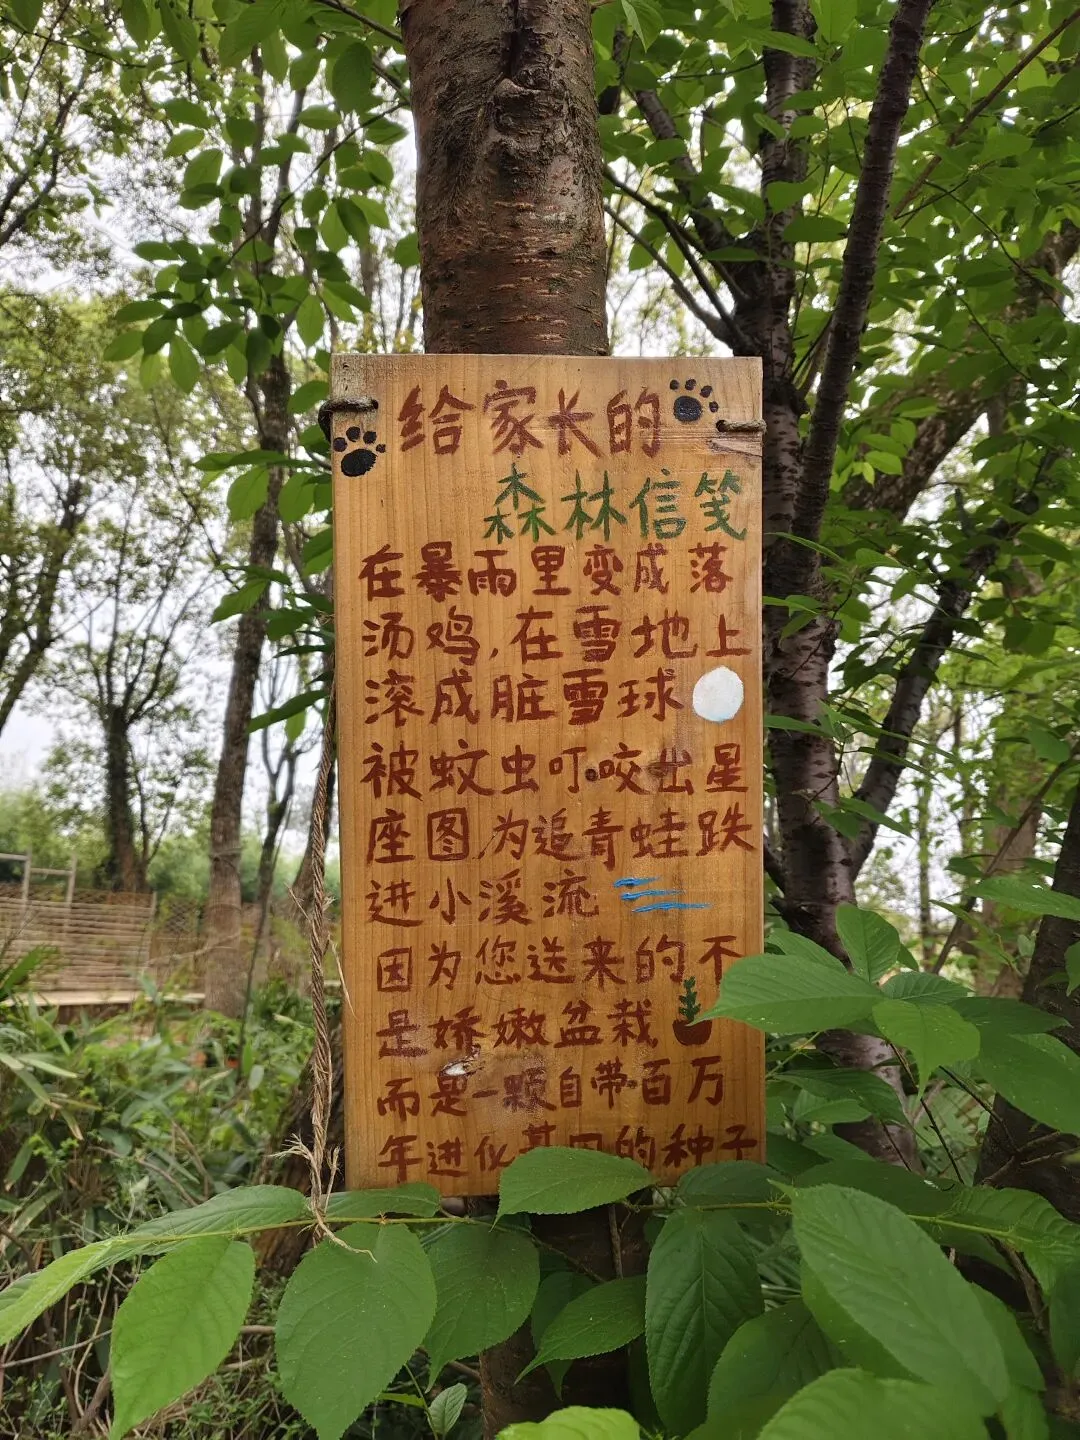 给家长的
森林信笺
在暴雨里变成落
汤鸡,在雪地上
滚成脏雪球
被蚊虫叮咬出星
座图,为追青蛙跌
进小溪流
因为您送来的不
是娇嫩盆栽
而是一颗自带百万
年进化基因的种子